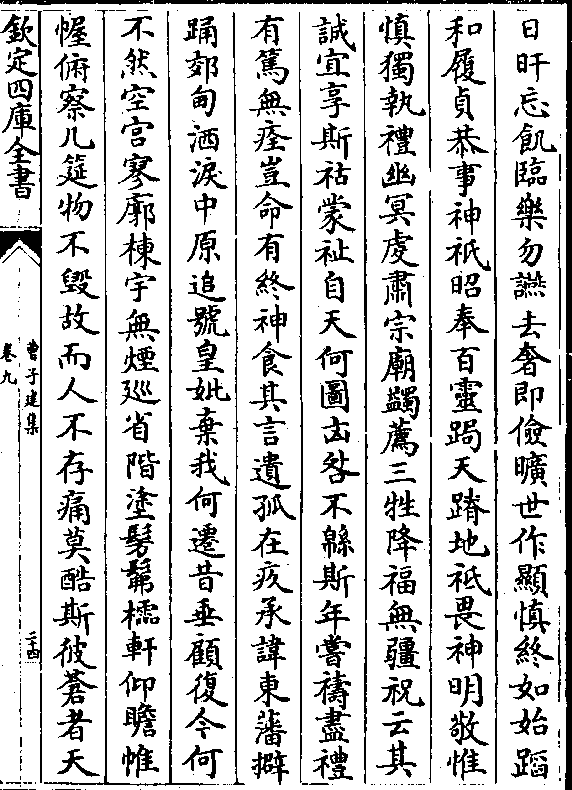 日旰忘飢臨樂勿讌去奢即儉曠世作顯慎終如始蹈
和履貞恭事神祇昭奉百靈跼天蹐地祇畏神明敬惟
慎獨執禮幽冥虔肅宗廟蠲薦三牲降福無疆祝云其
誠宜享斯祜蒙祉自天何圖凶咎不緜斯年嘗禱盡禮
有篤無痊豈命有終神食其言遺孤在疚承諱東藩擗
踊郊甸洒淚中原追號皇妣棄我何遷昔垂顧復今何
不然空宮寥廓棟宇無煙廵省階塗髣髴櫺軒仰瞻帷
幄俯察几筵物不毀故而人不存痛莫酷斯彼蒼者天
欽定四庫全書
曹子建集
卷九
二十四